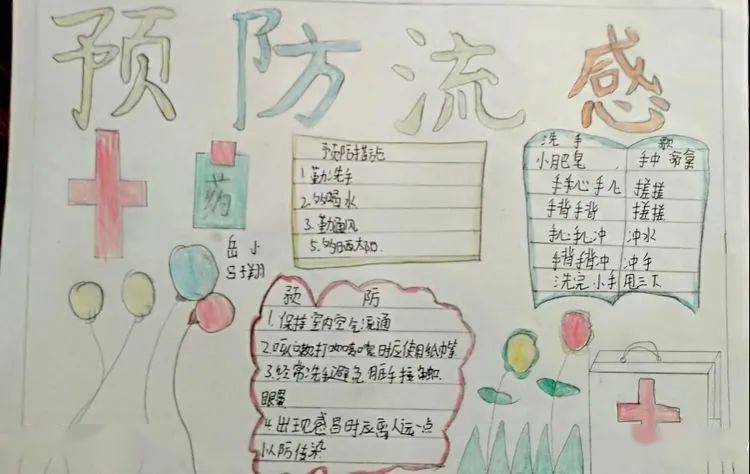 预防流感
药
预防措施
1.勤洗手
2.多喝水
3.勤通风
5.多晒太阳.
岳小
吕翔
洗手歌
小肥皂,手中拿
手心手儿 搓搓
手背手背 搓搓
手心手心冲 冲水
手背手背冲 冲手
洗完小手 甩三下
预防
1.保持室内空气流通
2.咳嗽打喷嚏时应使用纸巾等
3.经常洗手避免用脏手接触
眼鼻
4.出现感冒时应离人远一点
以防传染